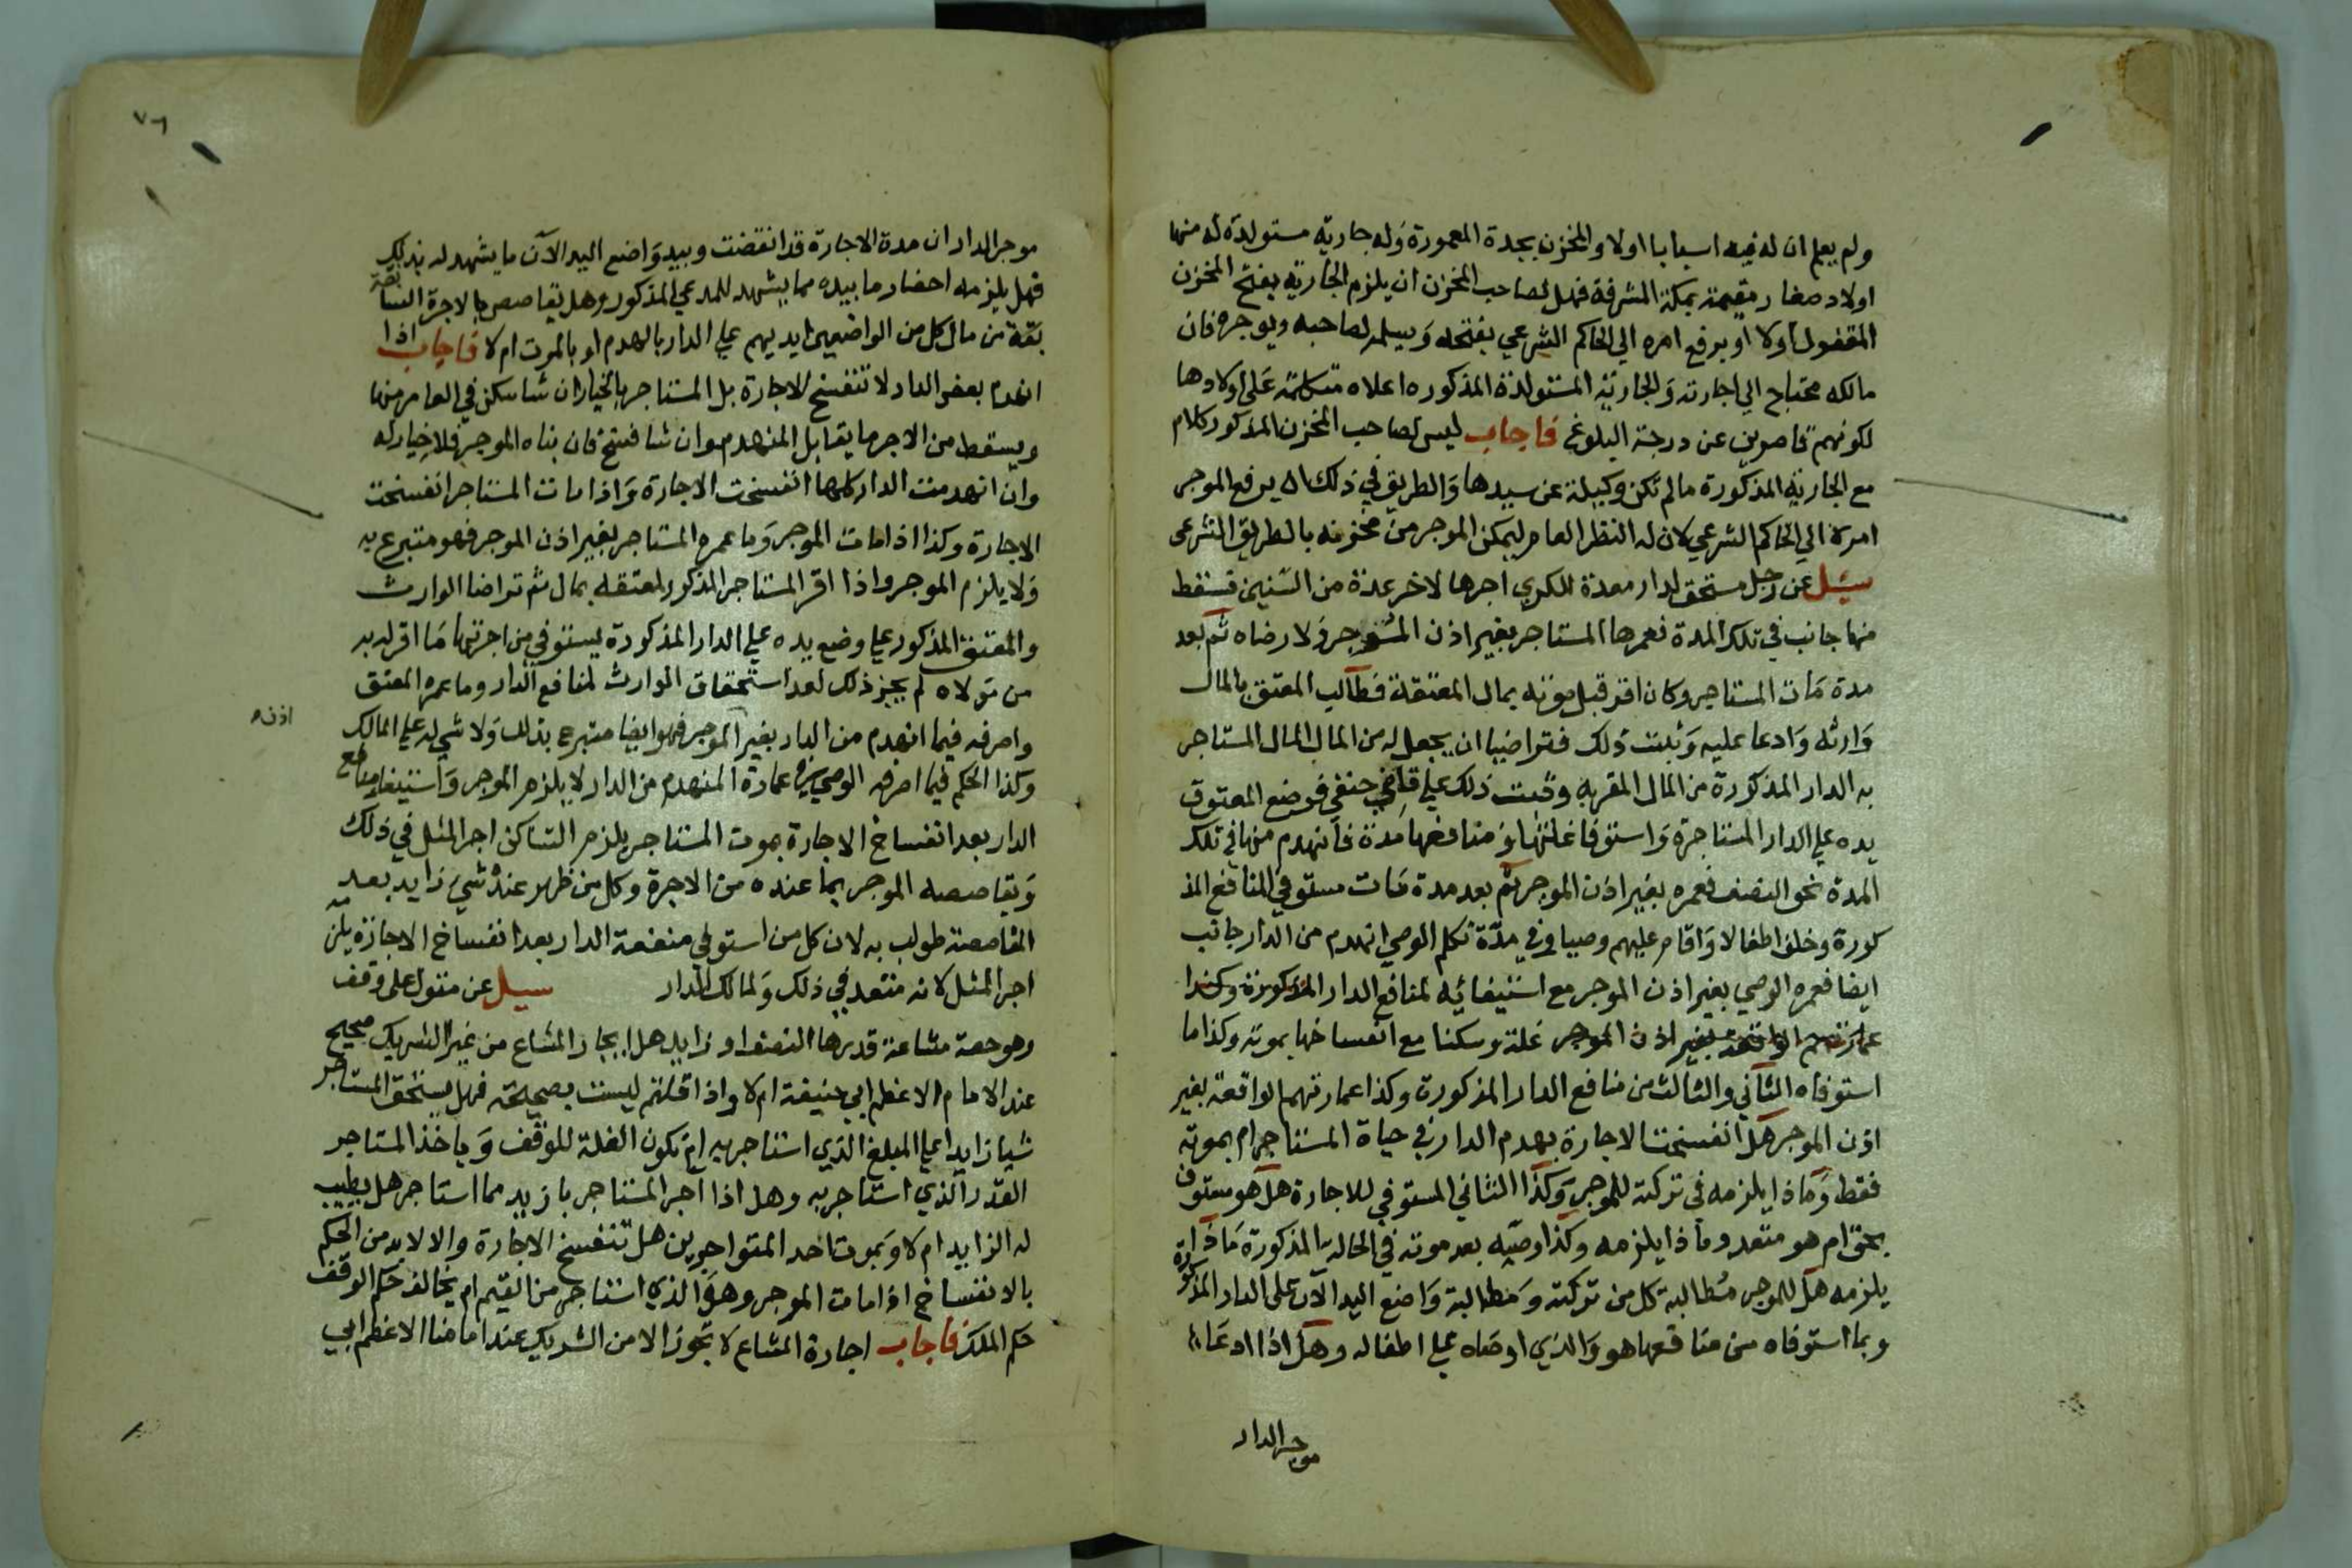 ولم يعلم ان له فيه اسبابا اولا والمخزن بجدة المعمورة وله جارية مستولدة له منها
اولاد صغار مقيمة بمكة المشرفة فهل لصاحب المخزن ان يلزم الجارية بفتح المخزن
المقفول اولا او يرفع امره الي الحاكم الشرعي بفتحه ويسلم لصاحبه ويوجره فان
مالكه محتاج الي اجارته والجارية المستولدة المذكوره اعلاه متكلمة على اولادها
لكونهم قاصرين عن درجة البلوغ فاجاب ليس لصاحب المخزن المذكور كلام
مع الجارية المذكورة مالم تكن وكيلة عن سيدها والطريق في ذلك ان يرفع الموجر
امره الي الحاكم الشرعي لان له النظر العام ليمكن الموجر من مخزنه بالطريق الشرعي
سيل عن رجل مستحق لدار معدة للكري اجرها لاخر عدة من السنين فسقط
منها جانب في تلك المدة فعمرها المستاجر بغير اذن الموجر ولا رضاه ثم بعد
مدة مات المستاجر وكان اقر قبل موته بمال لمعتقه فطالب المعتق بالمال
وارثه وادعا عليه وثبت ذلك فتراضيا ان يجعل له من المال المال المستاجر
به الدار المذكورة من المال المقر به وثبت ذلك علي قاضي حنفي فوضع المعتوق
يده علي الدار المستاجرة واستوفا غلتها ومنافعها مدة فانهدم منها في تلك
المدة نحو النصف فعمره بغير اذن الموجر ثم بعد مدة مات مستوفي المنافع المذ
كورة وخلف اطفالا واقام عليهم وصيا وفي مدة تكلم الوصي انهدم من الدار جانب
ايضا فعمره الوصي بغير اذن الموجر مع استيفائه لمنافع الدار المذكورة وكذا
عمارتهم الواقعة بغير اذن الموجر غلة وسكنا مع انفساخها بموته وكذا ما
استوفاه الثاني والثالث من منافع الدار المذكورة وكذا عمارتهم الواقعة بغير
اذن الموجر هل انفسخت الاجارة بهدم الدار في حياة المستاجر ام بموته
فقط وماذا يلزمه في تركته للموجر وكذا الثاني المستوفي للاجارة هل هو مستوف
بحق ام هو متعد وماذا يلزمه وكذا وصيه بعد موته في الحالة المذكورة ماذا
يلزمه هل للموجر مطالبة كل من تركته ومطالبة واضع اليد الآن على الدار المذكورة
وبما استوفاه من منافعها هو والذي اوصاه علي اطفاله وهل اذا ادعا
موجر الدار
٧٦
موجر الدار ان مدة الاجارة قد انقضت وبيد واضع اليد الآن ما يشهد له بذلك
فهل يلزمه احضار ما بيده مما يشهد للمدعي المذكور وهل يقاصص بالاجرة السا
بقة من مال كل من الواضعين ايديهم علي الدار بالهدم او بالموت ام لا فاجاب اذا
انهدم بعض الدار لا تنفسخ الاجارة بل المستاجر بالخيار ان شا سكن في العامر منها
ويسقط من الاجر ما يقابل المنهدم وان شا فسخ فان بناه الموجر فلا خيار له
وان انهدمت الدار كلها انفسخت الاجارة واذا مات المستاجر انفسخت
الاجارة وكذا اذا مات الموجر وما عمره المستاجر بغير اذن الموجر فهو متبرع به
ولا يلزم الموجر واذا اقر المستاجر المذكور لمعتقه بمال ثم تراضا الوارث
والمعتق المذكور علي وضع يده علي الدار المذكورة ليستوفي من اجرتها ما اقر له به
من مولاه لم يجز ذلك لعدم استحقاق الوارث لمنافع الدار وما عمره المعتق
واصرفه فيما انهدم من الدار بغير الموجر فهو ايضا متبرع بذلك ولا شي له علي المالك
اذنه
وكذا الحكم فيما اصرفه الوصي في عمارة المنهدم من الدار لا يلزم الموجر واستيفا منافع
الدار بعد انفساخ الاجارة بموت المستاجر يلزم الساكن اجر المثل في ذلك
ويقاصصه الموجر بما عنده من الاجرة وكل من ظهر عنده شي زايد بعد
المقاصصة طولب به لان كل من استوفي منفعة الدار بعد انفساخ الاجازة يلزمه
اجر المثل لانه متعد في ذلك ولمالك الدار سيل عن متول على وقف
وهو حصة مشاعة قدرها النصف او زايد هل ايجار المشاع من غير الشريك صحيح
عند الامام الاعظم ابي حنيفة ام لا واذا قلتم ليست بصحيحة فهل يستحق المستاجر
شيا زايدا علي المبلغ الذي استاجر به ام تكون الغلة للوقف وياخذ المستاجر
القدر الذي استاجر به وهل اذا اجر المستاجر بازيد مما استاجر هل يطيب
له الزايد ام لا وبموت احد المتواجرين هل تنفسخ الاجارة والا لابد من الحكم
بالانفساخ اذا مات الموجر وهو الذي استاجر من القيم ام يخالف حكم الوقف
حكم الملك فاجاب اجارة المشاع لا تجوز الا من الشريك عند امامنا الاعظم ابي